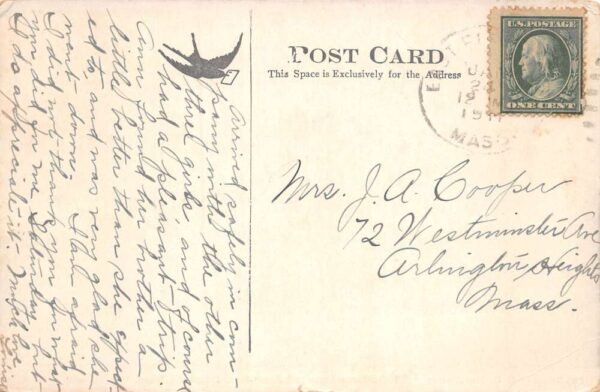 POST CARD
This Space is Exclusively for the Address
U.S. POSTAGE
ONE CENT
MASS
Mrs. J. A. Cooper
72 Westminster Ave
Arlington Heights
Mass.
Arrived safely in com-
pany with the other
three girls and of course
had a pleasant trip.
found her brother a
little better than she expect-
ed to and was very glad she
went down. Am afraid
I did not thank you for what
you did for me Saturday but
I do appreciate it. Much love